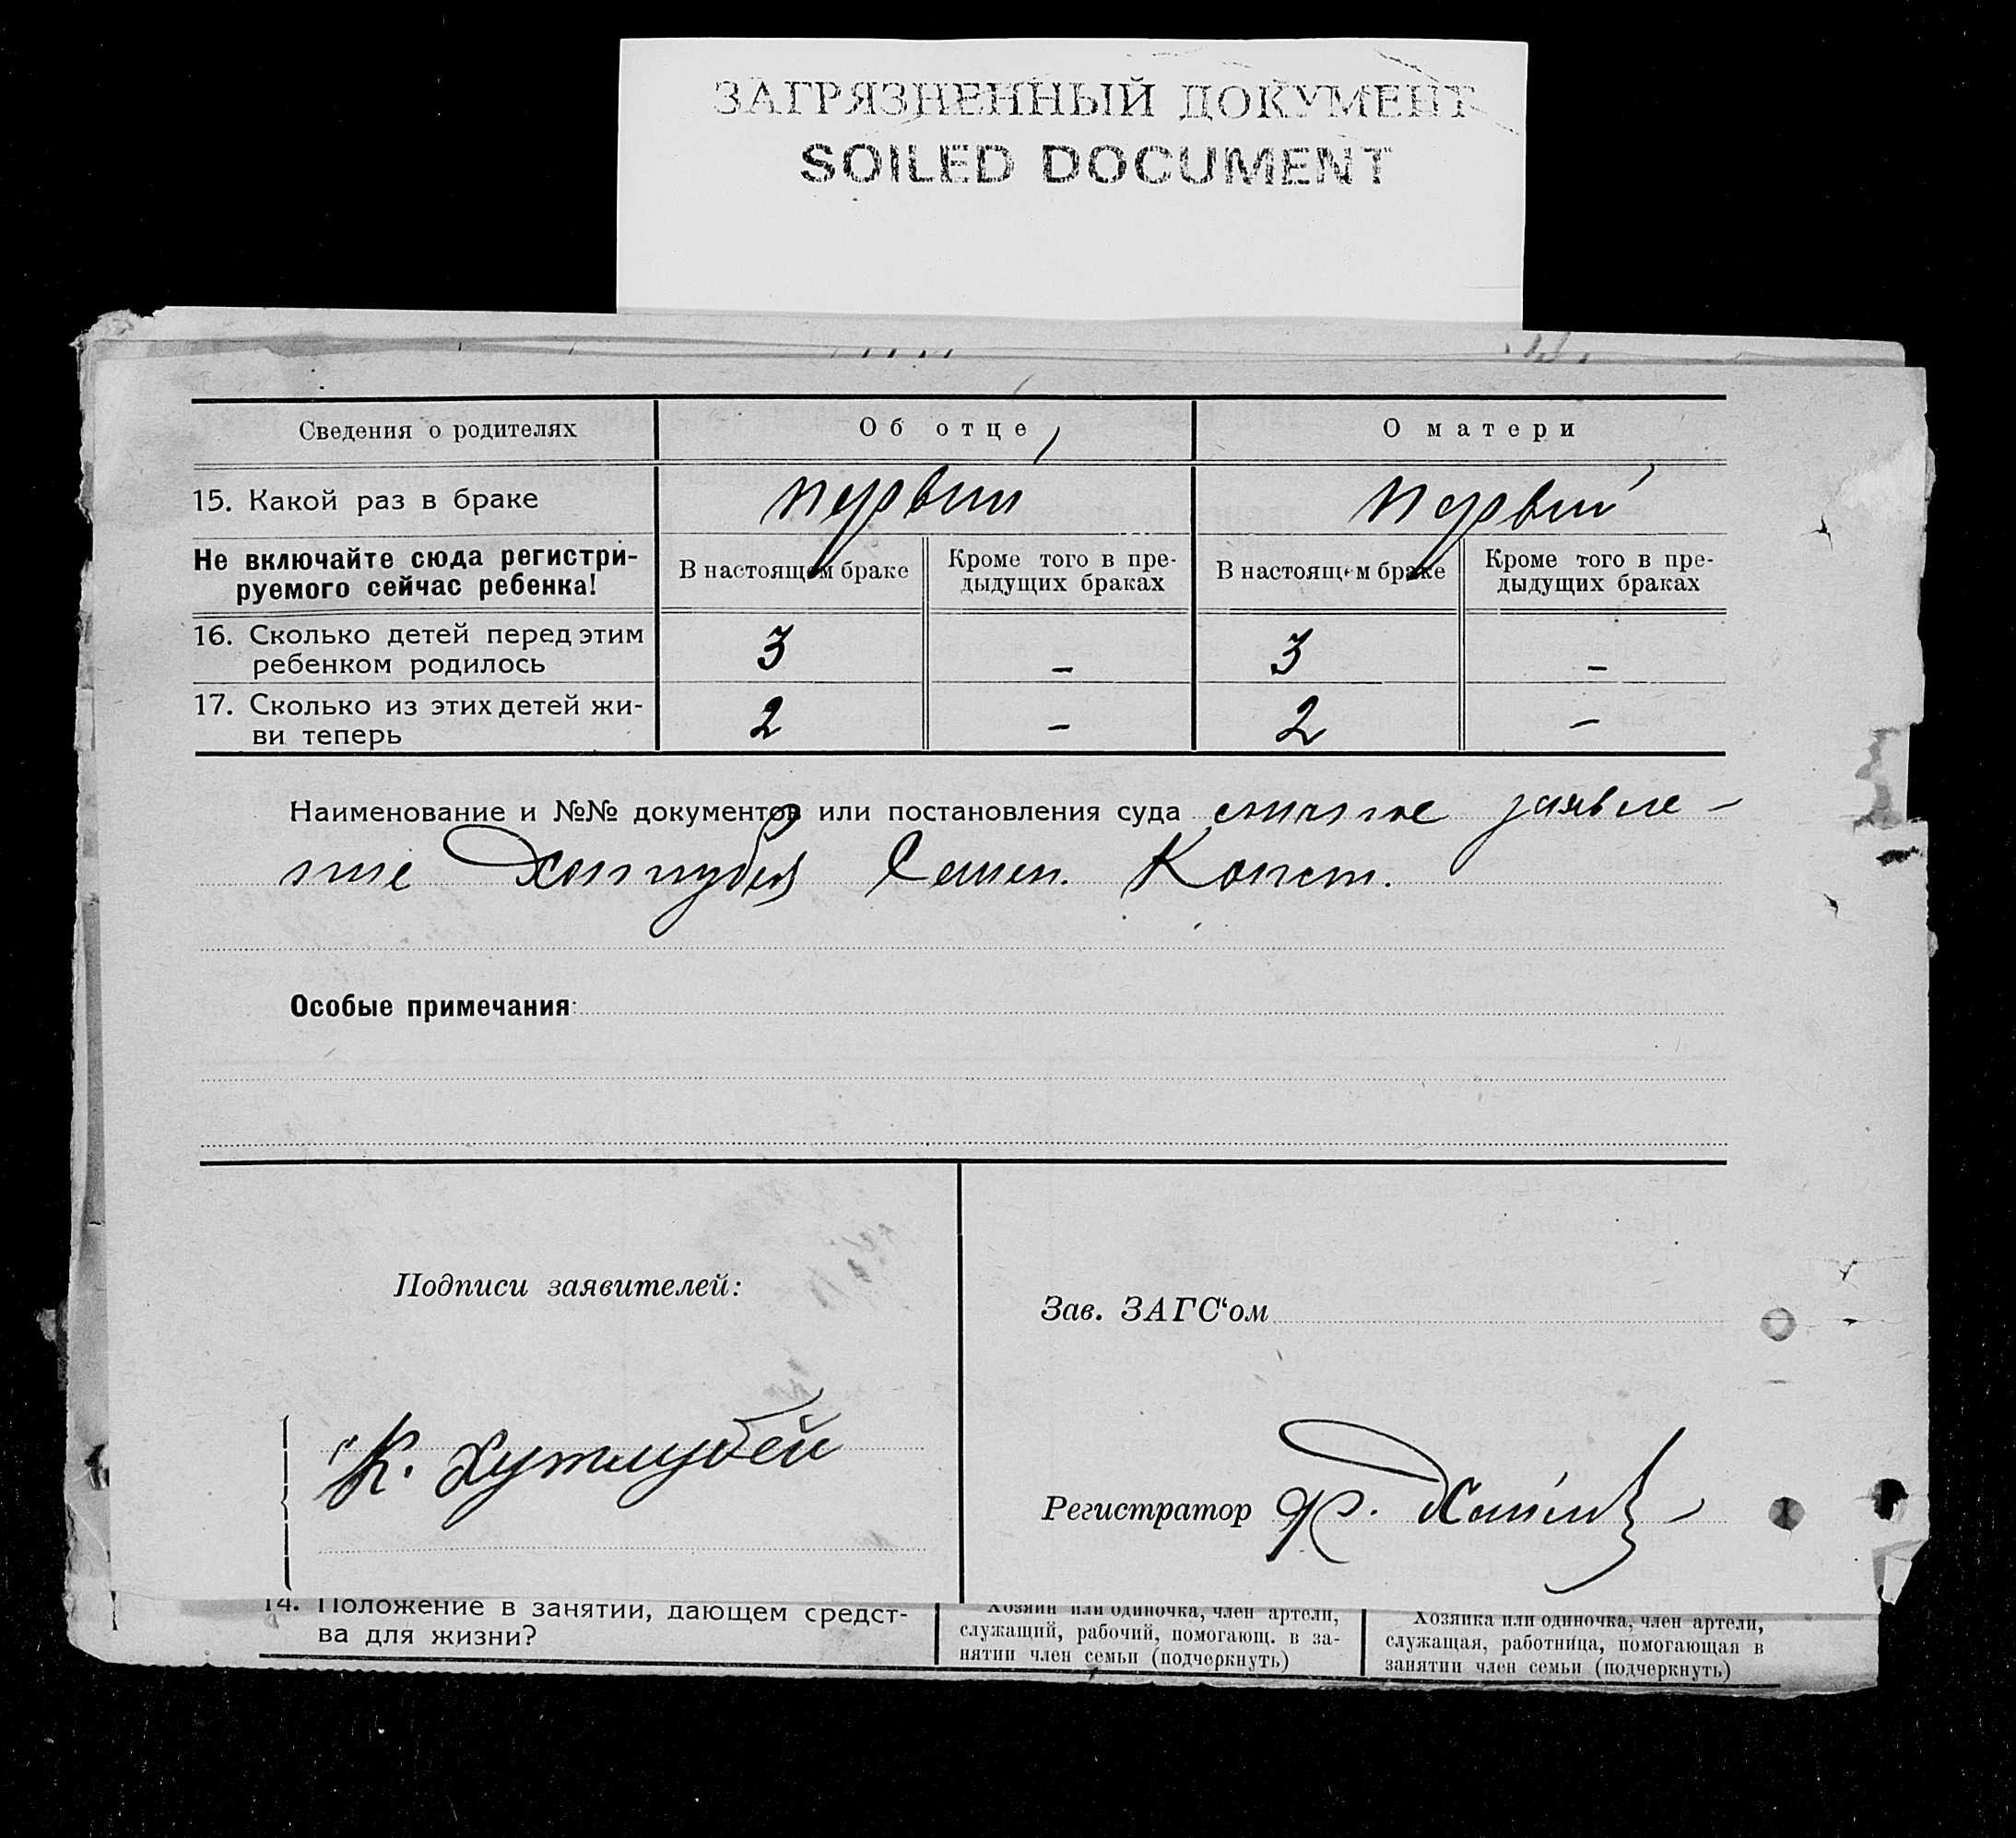 ЗАГРЯЗНЕННЫЙ ДОКУМЕНТ
SOILED DOCUMENT
Сведения о родителях Об отце О матери
15. Какой раз в браке первый первый
Не включайте сюда регистри-
руемого сейчас ребенка!
В настоящем браке
Кроме того в пре-
дыдущих браках
В настоящем браке
Кроме того в пре-
дыдущих браках
16. Сколько детей перед этим
ребенком родилось 3 – 3 –
17. Сколько из этих детей жи-
ви теперь 2 – 2 –
Наименование и №№ документов или постановления суда личное заявле-
ние Семен. Конст.
Особые примечания:
Подписи заявителей:
Зав. ЗАГС‘ом
К. Хутлубей
Регистратор Ф.
14. Положение в занятии, дающем средст-
ва для жизни?
Хозяин или одиночка, член артели,
служащий, рабочий, помогающ. в за-
нятии член семьи (подчеркнуть)
Хозяйка или одиночка, член артели,
служащая, работница, помогающая в
занятии член семьи (подчеркнуть)